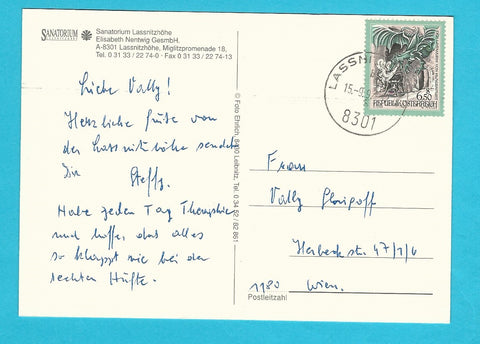 SANATORIUM
Sanatorium Lassnitzhöhe
Elisabeth Nentwig GesmbH.
A-8301 Lassnitzhöhe, Miglitzpromenade 18,
Tel. 0 31 33 / 22 74-0 · Fax 0 31 33 / 22 74-13
Liebe Vally!
Herzliche Grüße von
der Lassnitzhöhe sendet
Dir Steffy.
Habe jeden Tag Therapien
und hoffe, das alles
so klappt wie bei der
rechten Hüfte.
© Foto Ehrlich, 8430 Leibnitz, Tel. 0 34 52 / 82 861
LASSNI
15.-9.9
8301
6.50
REPUBLIK ÖSTERREICH
Frau
Vally
Herbeckstr. 47/1/6
1180 Wien.
Postleitzahl